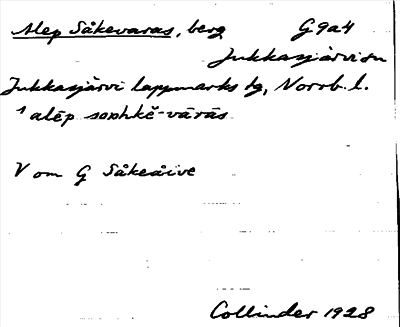 Alep Såkevaras, berg G9a4
Jukkasjärvi sn
Jukkasjärvi lappmarks tg, Norrb. l.
alēp soαhkĕ-vārās
V om G Såkeåive
Collinder 1928